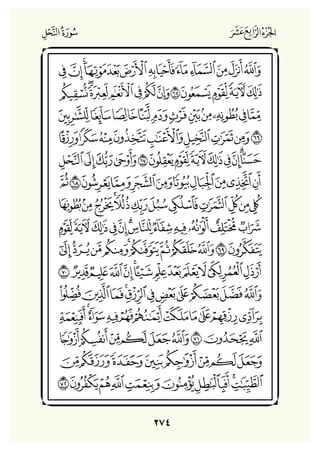 الجزء الرابع عشر سورة النحل
وَٱللَّهُ أَنزَلَ مِنَ ٱلسَّمَآءِ مَآءً فَأَحۡيَا بِهِ ٱلۡأَرۡضَ بَعۡدَ مَوۡتِهَآۚ إِنَّ فِي
ذَٰلِكَ لَأٓيَةٗ لِّقَوۡمٖ يَسۡمَعُونَ ٦٥ وَإِنَّ لَكُمۡ فِي ٱلۡأَنۡعَٰمِ لَعِبۡرَةٗۖ نُّسۡقِيكُم
مِّمَّا فِي بُطُونِهِۦ مِنۢ بَيۡنِ فَرۡثٖ وَدَمٖ لَّبَنًا خَالِصٗا سَآئِغٗا لِّلشَّٰرِبِينَ
٦٦ وَمِن ثَمَرَٰتِ ٱلنَّخِيلِ وَٱلۡأَعۡنَٰبِ تَتَّخِذُونَ مِنۡهُ سَكَرٗا وَرِزۡقًا
حَسَنًاۚ إِنَّ فِي ذَٰلِكَ لَأٓيَةٗ لِّقَوۡمٖ يَعۡقِلُونَ ٦٧ وَأَوۡحَىٰ رَبُّكَ إِلَى ٱلنَّحۡلِ
أَنِ ٱتَّخِذِي مِنَ ٱلۡجِبَالِ بُيُوتٗا وَمِنَ ٱلشَّجَرِ وَمِمَّا يَعۡرِشُونَ ٦٨ ثُمَّ
كُلِي مِن كُلِّ ٱلثَّمَرَٰتِ فَٱسۡلُكِي سُبُلَ رَبِّكِ ذُلُلٗاۚ يَخۡرُجُ مِنۢ بُطُونِهَا
شَرَابٞ مُّخۡتَلِفٌ أَلۡوَٰنُهُۥ فِيهِ شِفَآءٞ لِّلنَّاسِۚ إِنَّ فِي ذَٰلِكَ لَأٓيَةٗ لِّقَوۡمٖ
يَتَفَكَّرُونَ ٦٩ وَٱللَّهُ خَلَقَكُمۡ ثُمَّ يَتَوَفَّىٰكُمۡۚ وَمِنكُم مَّن يُرَدُّ إِلَىٰٓ
أَرۡذَلِ ٱلۡعُمُرِ لِكَيۡ لَا يَعۡلَمَ بَعۡدَ عِلۡمٖ شَيۡـًٔاۚ إِنَّ ٱللَّهَ عَلِيمٞ قَدِيرٞ ٧٠
وَٱللَّهُ فَضَّلَ بَعۡضَكُمۡ عَلَىٰ بَعۡضٖ فِي ٱلرِّزۡقِۚ فَمَا ٱلَّذِينَ فُضِّلُواْ
بِرَآدِّي رِزۡقِهِمۡ عَلَىٰ مَا مَلَكَتۡ أَيۡمَٰنُهُمۡ فَهُمۡ فِيهِ سَوَآءٌۚ أَفَبِنِعۡمَةِ
ٱللَّهِ يَجۡحَدُونَ ٧١ وَٱللَّهُ جَعَلَ لَكُم مِّنۡ أَنفُسِكُمۡ أَزۡوَٰجٗا
وَجَعَلَ لَكُم مِّنۡ أَزۡوَٰجِكُم بَنِينَ وَحَفَدَةٗ وَرَزَقَكُم مِّنَ
ٱلطَّيِّبَٰتِۚ أَفَبِٱلۡبَٰطِلِ يُؤۡمِنُونَ وَبِنِعۡمَتِ ٱللَّهِ هُمۡ يَكۡفُرُونَ ٧٢
٢٧٤